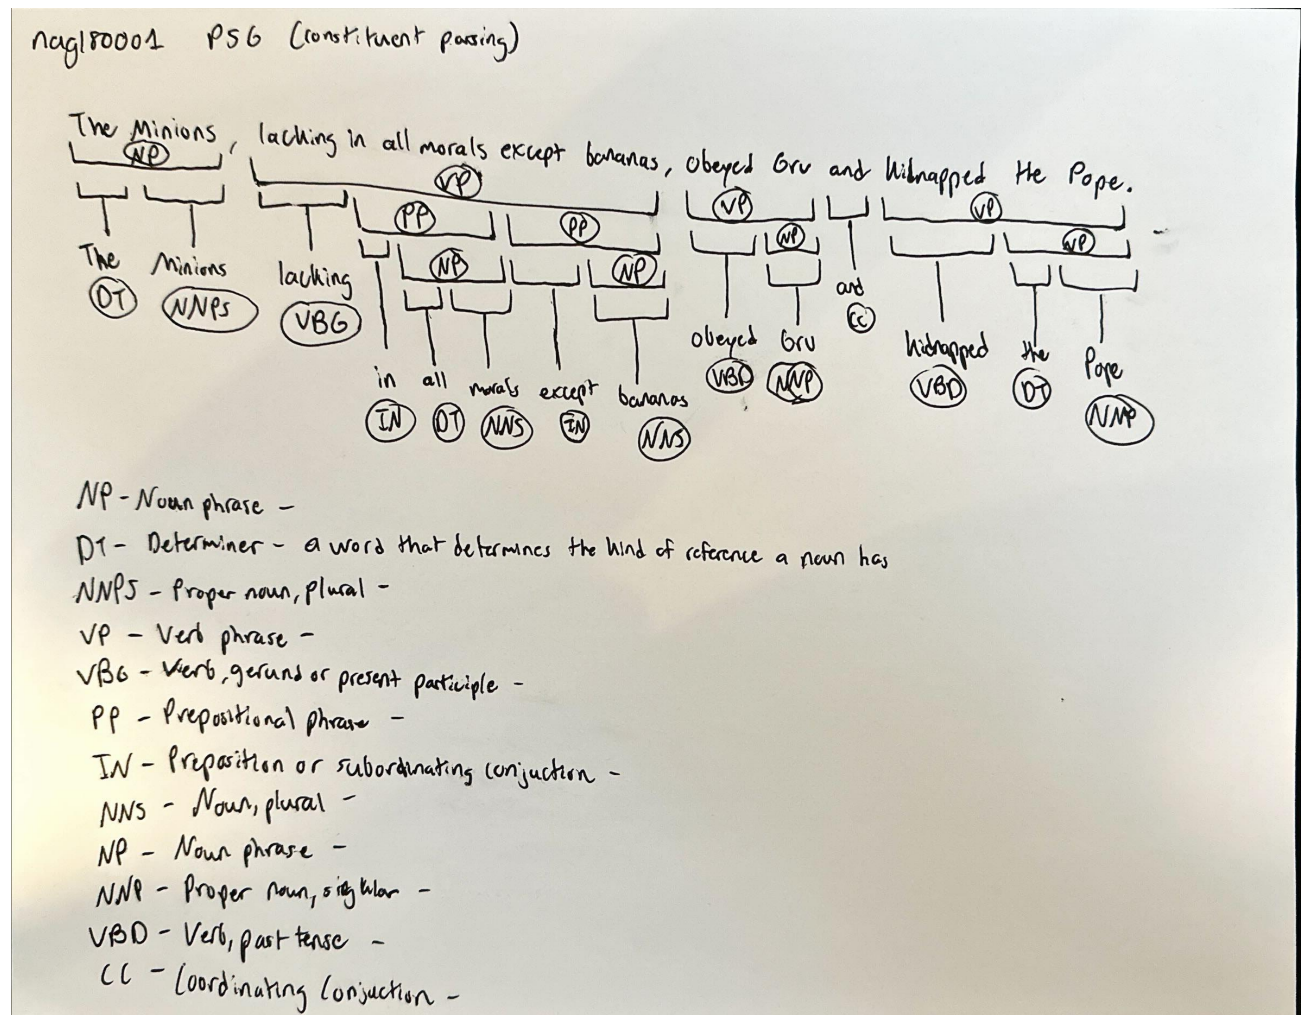 nag180001 PSG (constituent parsing)
The Minions, lacking in all morals except bananas, obeyed Gru and kidnapped the Pope.
NP VP VP VP
PP PP NP NP
NP NP
The Minions lacking obeyed Gru and kidnapped the Pope
DT NNPS VBG VBD NNP CC VBD DT NNP
in all morals except bananas
IN DT NNS IN NNS
NP - Noun phrase -
DT - Determiner - a word that determines the kind of reference a noun has
NNPS - Proper noun, plural -
VP - Verb phrase -
VBG - Verb, gerund or present participle -
PP - Prepositional phrase -
IN - Preposition or subordinating conjuction -
NNS - Noun, plural -
NP - Noun phrase -
NNP - Proper noun, singular -
VBD - Verb, past tense -
CC - Coordinating Conjuction -